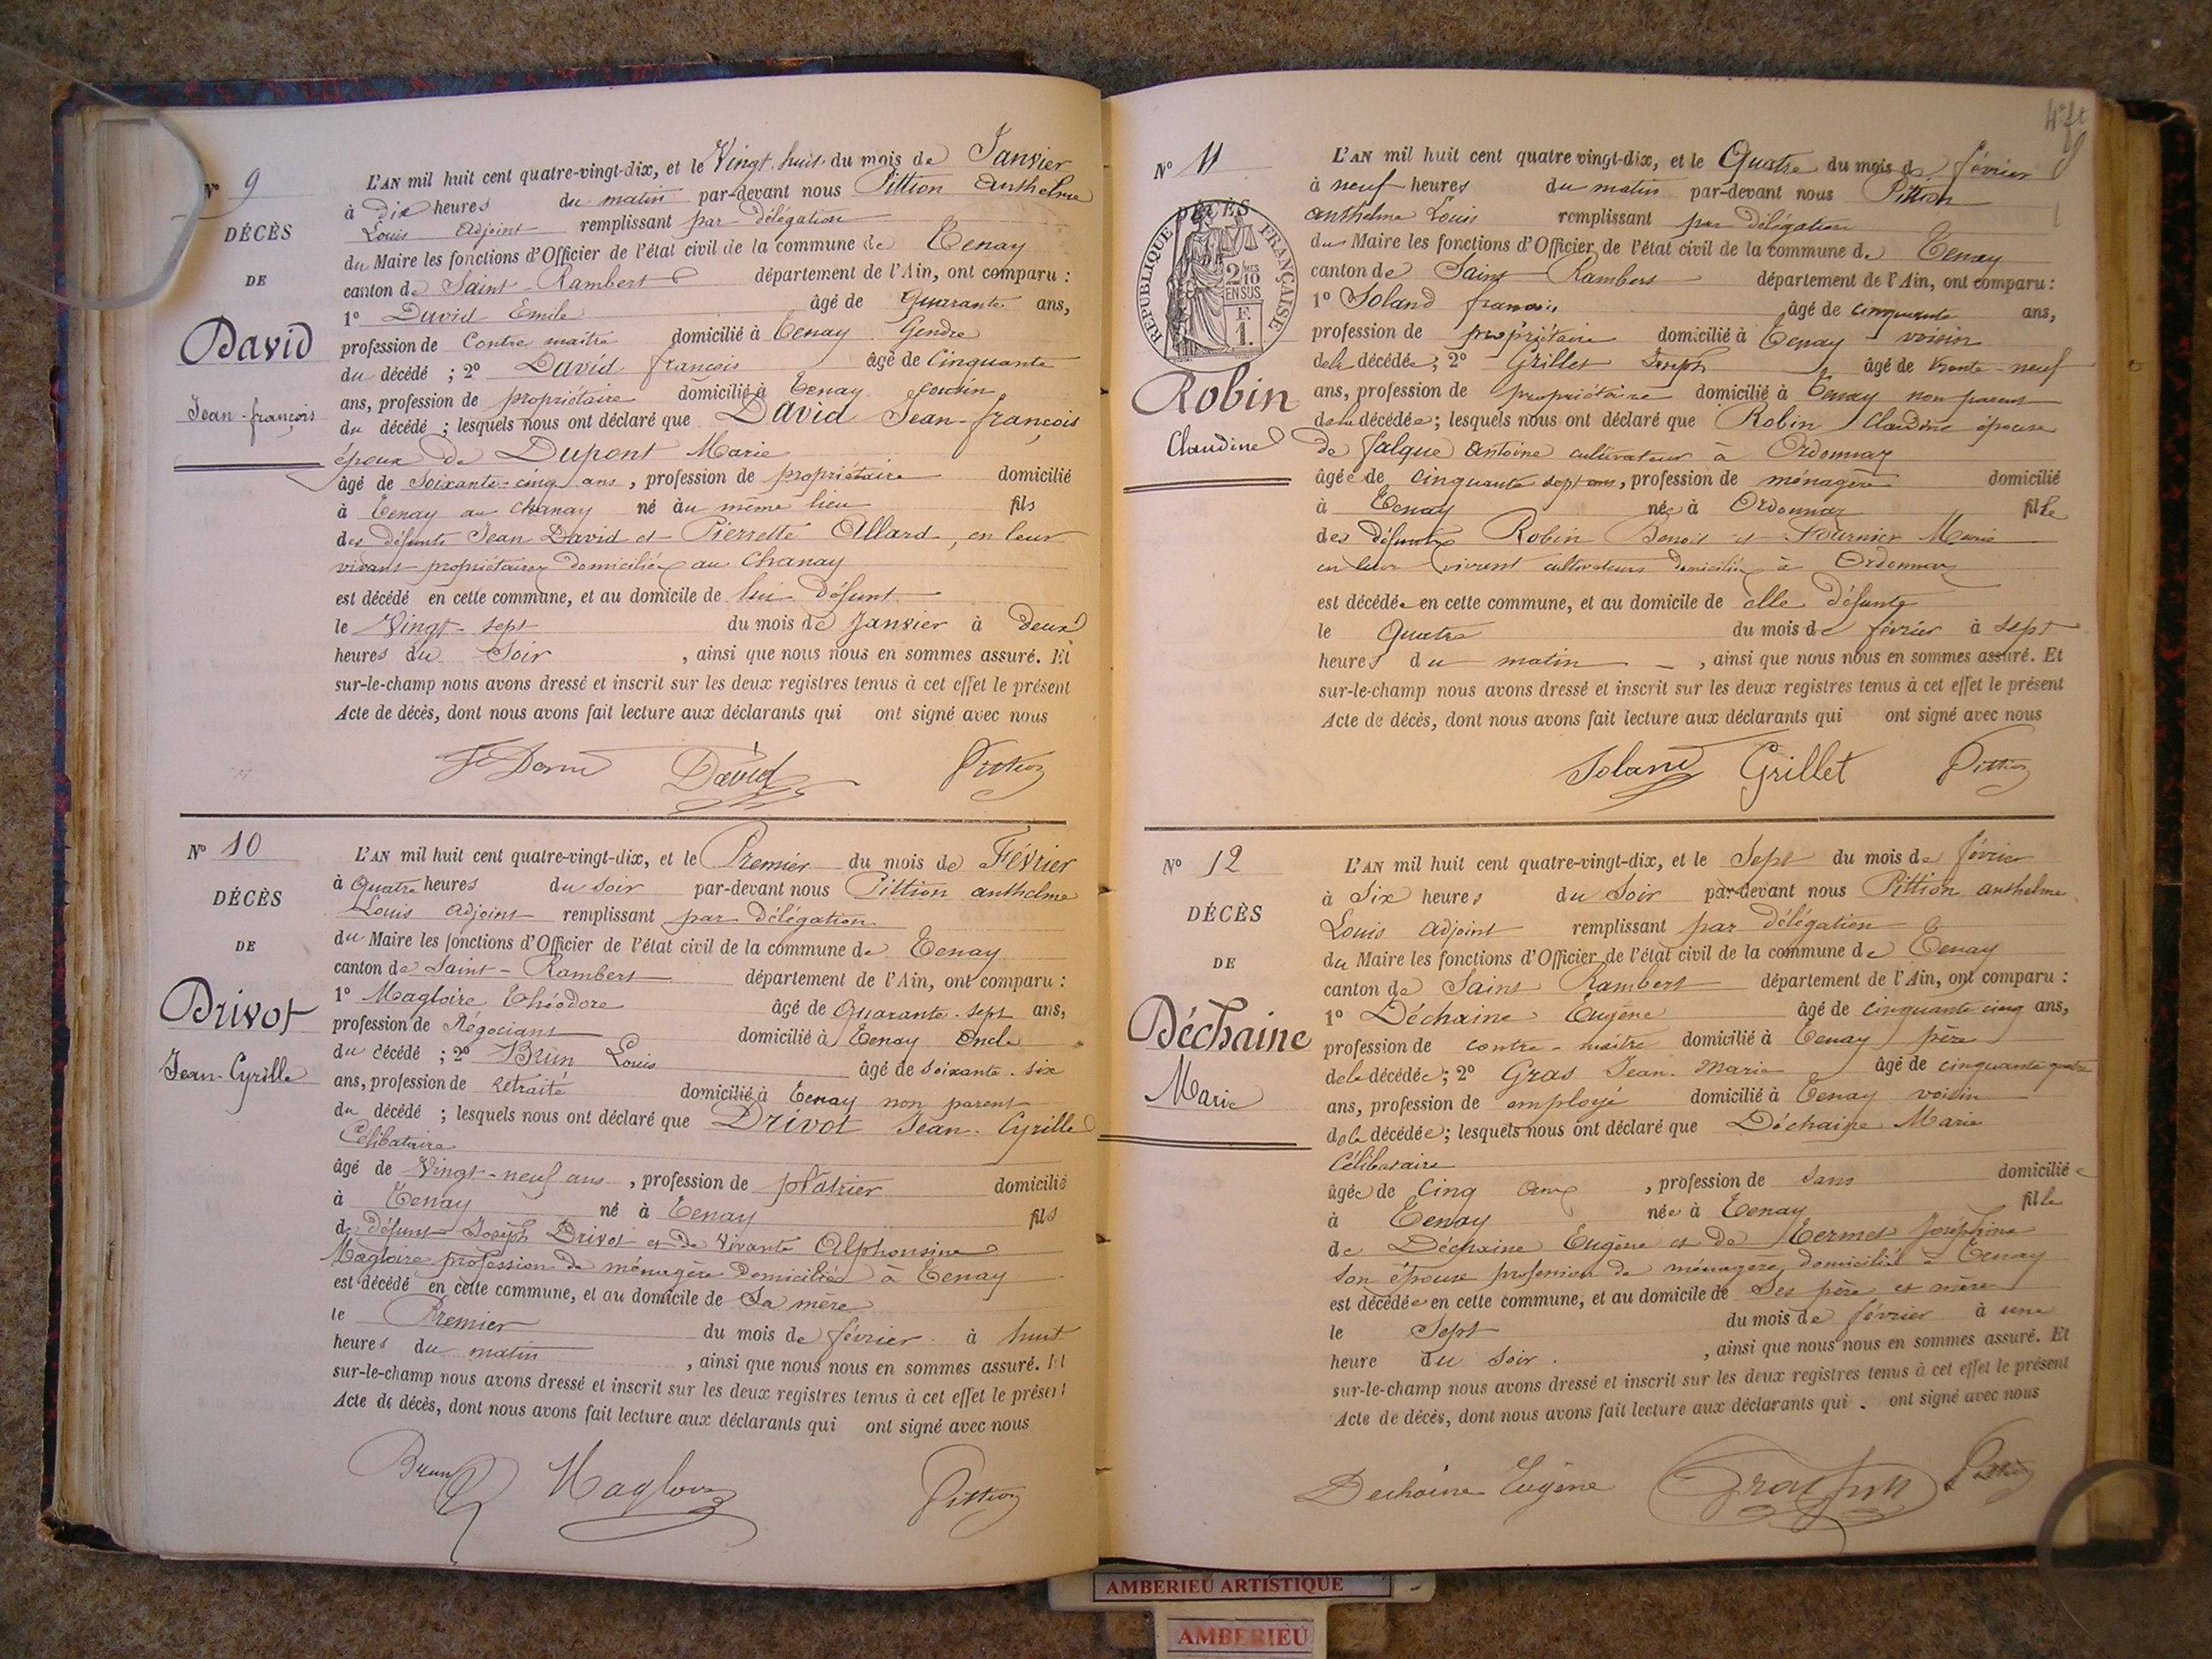 N° 9
DÉCÈS
DE
David
Jean-françois
L'AN mil huit cent quatre-vingt-dix, et le Vingt-huit du mois de Janvier
à Dix heures du matin par-devant nous Pittion anthelme
Louis adjoint remplissant par délégation
du Maire les fonctions d'Officier de l'état civil de la commune de Tenay
canton de Saint-Rambert département de l'Ain, ont comparu :
1° David Emile âgé de quarante ans,
profession de Contre maître domicilié à Tenay Gendre
du décédé ; 2° David françois âgé de Cinquante
ans, profession de propriétaire domicilié à Tenay cousin
du décédé ; lesquels nous ont déclaré que David Jean-françois
époux de Dupont Marie
âgé de Soixante-cinq ans, profession de propriétaire domicilié
à Tenay au Chanay né au même lieu fils
des défunts Jean David et Pierrette Allard, en leur
vivant propriétaires domiciliés au Chanay
est décédé en cette commune, et au domicile de lui défunt
le Vingt-sept du mois de Janvier à Deux
heures du Soir, ainsi que nous nous en sommes assuré. Et
sur-le-champ nous avons dressé et inscrit sur les deux registres tenus à cet effet le présent
Acte de décès, dont nous avons fait lecture aux déclarants qui ont signé avec nous
David Pittion
N° 10
DÉCÈS
DE
Drivot
Jean-Cyrille
L'AN mil huit cent quatre-vingt-dix, et le Premier du mois de Février
à quatre heures du soir par-devant nous Pittion anthelme
Louis adjoint remplissant par délégation
du Maire les fonctions d'Officier de l'état civil de la commune de Tenay
canton de Saint-Rambert département de l'Ain, ont comparu :
1° Magloire Théodore âgé de quarante-sept ans,
profession de Négociant domicilié à Tenay Oncle
du décédé ; 2° Brun Louis âgé de soixante-six
ans, profession de retraité domicilié à Tenay non parent
du décédé ; lesquels nous ont déclaré que Drivot Jean-Cyrille
Célibataire
âgé de Vingt-neuf ans, profession de plâtrier domicilié
à Tenay né à Tenay fils
de défunt Joseph Drivot et de vivante Alphonsine
Magloire profession de ménagère domiciliée à Tenay
est décédé en cette commune, et au domicile de Sa mère
le Premier du mois de février à huit
heures du matin, ainsi que nous nous en sommes assuré. Et
sur-le-champ nous avons dressé et inscrit sur les deux registres tenus à cet effet le présent
Acte de décès, dont nous avons fait lecture aux déclarants qui ont signé avec nous
Brun Magloire Pittion
N° 11
DÉCÈS
RÉPUBLIQUE FRANÇAISE
2 MES
10
EN SUS
F.
1.
Robin
Claudine
L'AN mil huit cent quatre vingt-dix, et le Quatre du mois de février
à neuf heures du matin par-devant nous Pittion
anthelme Louis remplissant par délégation
du Maire les fonctions d'Officier de l'état civil de la commune de Tenay
canton de Saint Rambert département de l'Ain, ont comparu :
1° Soland françois âgé de cinquante ans,
profession de propriétaire domicilié à Tenay voisin
de la décédée ; 2° Grillet Joseph âgé de trente-neuf
ans, profession de propriétaire domicilié à Tenay non parent
de la décédée ; lesquels nous ont déclaré que Robin Claudine épouse
de falque Antoine cultivateur à Ordonnaz
âgée de cinquante sept ans, profession de ménagère domicilié
à Tenay née à Ordonnaz fille
des défunts Robin Benoit et Fournier Marie
en leur vivant cultivateurs domiciliés à Ordonnaz
est décédée en cette commune, et au domicile de elle défunte
le quatre du mois de février à sept
heures du matin, ainsi que nous nous en sommes assuré. Et
sur-le-champ nous avons dressé et inscrit sur les deux registres tenus à cet effet le présent
Acte de décès, dont nous avons fait lecture aux déclarants qui ont signé avec nous
Soland Grillet Pittion
N° 12
DÉCÈS
DE
Déchaine
Marie
L'AN mil huit cent quatre-vingt-dix, et le Sept du mois de février
à Six heures du Soir par-devant nous Pittion anthelme
Louis adjoint remplissant par délégation
du Maire les fonctions d'Officier de l'état civil de la commune de Tenay
canton de Saint Rambert département de l'Ain, ont comparu :
1° Déchaine Eugène âgé de cinquante cinq ans,
profession de contre-maître domicilié à Tenay père
de la décédée ; 2° Gras Jean-Marie âgé de cinquante quatre
ans, profession de employé domicilié à Tenay voisin
de la décédée ; lesquels nous ont déclaré que Déchaine Marie
Célibataire
âgée de Cinq ans, profession de sans domiciliée
à Tenay née à Tenay fille
de Déchaine Eugène et de Mermet Joséphine
son épouse profession de ménagère domiciliés à Tenay
est décédée en cette commune, et au domicile de Ses père et mère
le Sept du mois de février à une
heure du soir, ainsi que nous nous en sommes assuré. Et
sur-le-champ nous avons dressé et inscrit sur les deux registres tenus à cet effet le présent
Acte de décès, dont nous avons fait lecture aux déclarants qui ont signé avec nous
Dechaine Eugène
AMBERIEU ARTISTIQUE
AMBERIEU